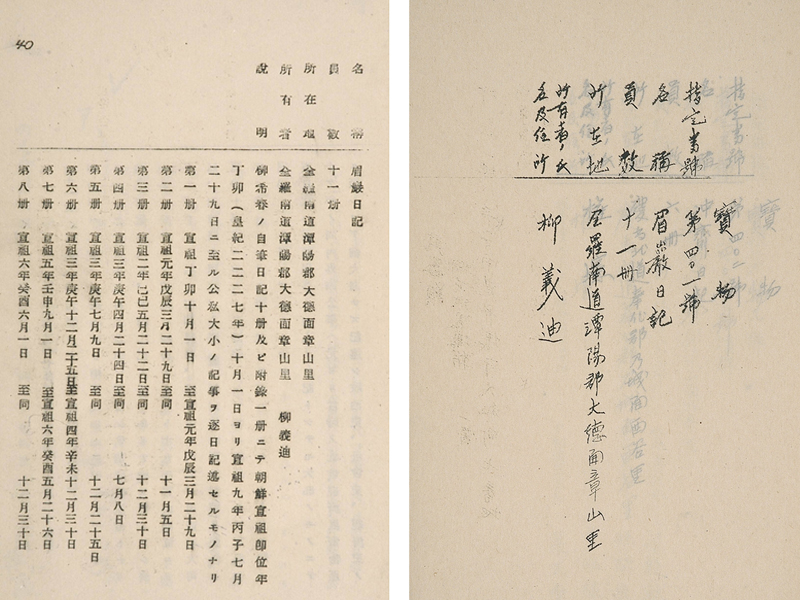 寶物
指定番號 第四〇一號
名稱 眉巖日記
員數 十一冊
所在地 全羅南道潭陽郡大德面章山里
所有者ノ氏
名及住所 柳義迪
名稱 眉巖日記
員數 十一册
所在地 全羅南道潭陽郡大德面章山里
所有者 全羅南道潭陽郡大德面章山里 柳義迪
說明 柳希春ノ自筆日記十册及ビ附錄一册ニテ朝鮮宣祖卽位年
丁卯(皇紀二二二七年)十月一日ヨリ宣祖九年丙子七月
二十九日ニ至ル公私大小ノ記事ヲ逐日記述セルモノナリ
第一册 宣祖丁卯十月一日 至宣祖元年戊辰三月二十九日
第二册 宣祖元年戊辰三月二十九日 至同 十一月五日
第三册 宣祖二年己巳五月二十二日 至同 十二月三十日
第四册 宣祖三年庚午四月二十四日 至同 七月八日
第五册 宣祖三年庚午七月九日 至同 十二月二十五日
第六册 宣祖三年庚午十二月二十五日 至宣祖四年辛未十二月三十日
第七册 宣祖五年壬申九月一日 至宣祖六年癸酉五月二十六日
第八册 宣祖六年癸酉六月一日 至同 十二月三十日
40